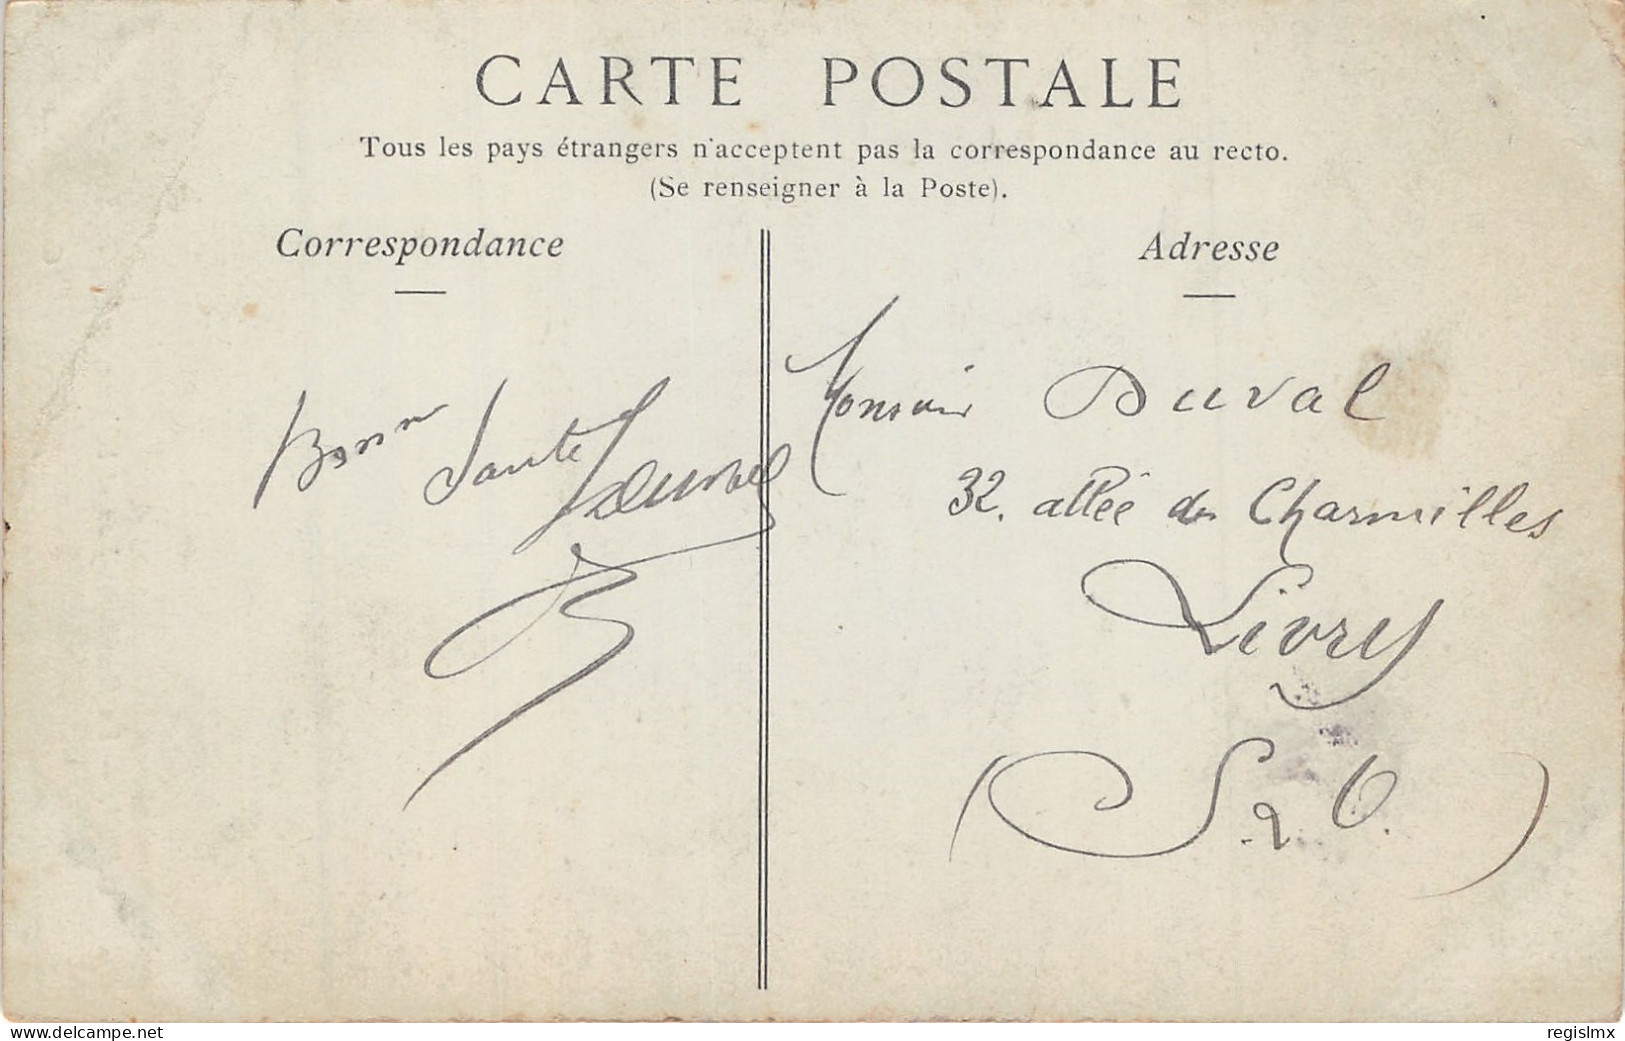 CARTE POSTALE
Tous les pays étrangers n'acceptent pas la correspondance au recto.
(Se renseigner à la Poste).
Correspondance
Adresse
Bonne Santé
Duval
Monsieur Duval
32. allée des Charmilles
Livry
(S. & O.)
www.delcampe.net
regislmx